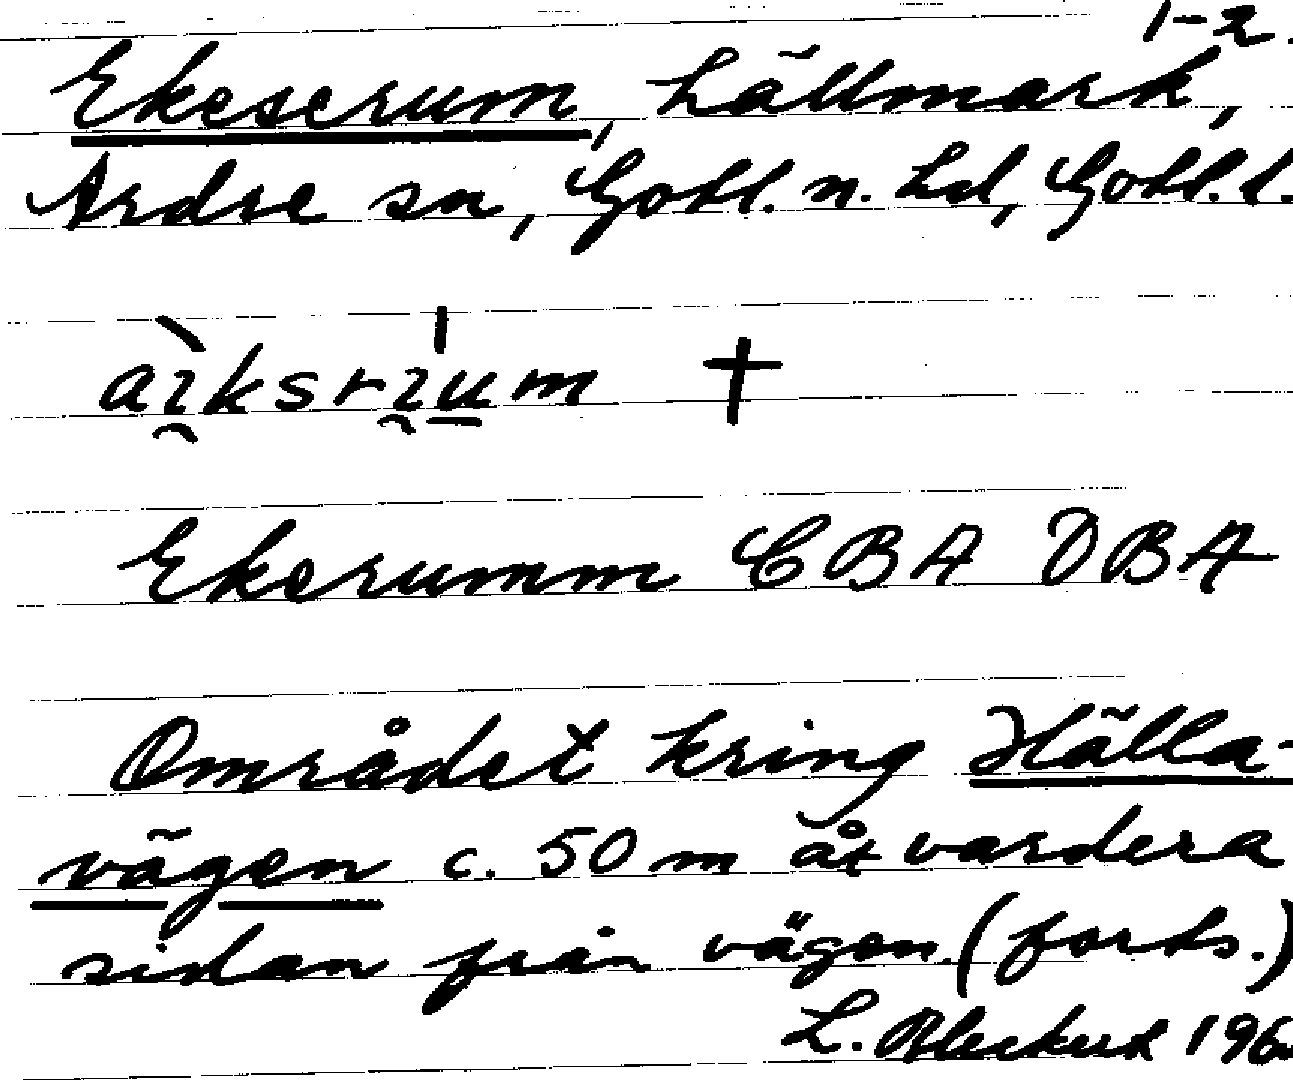 1-2.
Ekeserum, hällmark,
Ardre sn, Gotl. n. hd, Gotl. l.
aiksrium †
Ekerumm CBA DBA
Området kring Hälla-
vägen c. 50 m åt vardera
sidan från vägen. (forts.)
L. 196